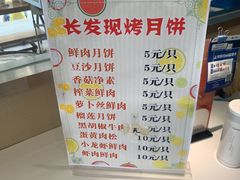 长发现烤月饼
鲜肉月饼 5元/只
豆沙月饼 5元/只
香菇净素 5元/只
榨菜鲜肉 5元/只
萝卜丝鲜肉 5元/只
榴莲月饼 5元/只
黑胡椒牛肉 元/只
蛋黄肉松 10元/只
小龙虾鲜肉 10元/只
虾肉鲜肉 10元/只